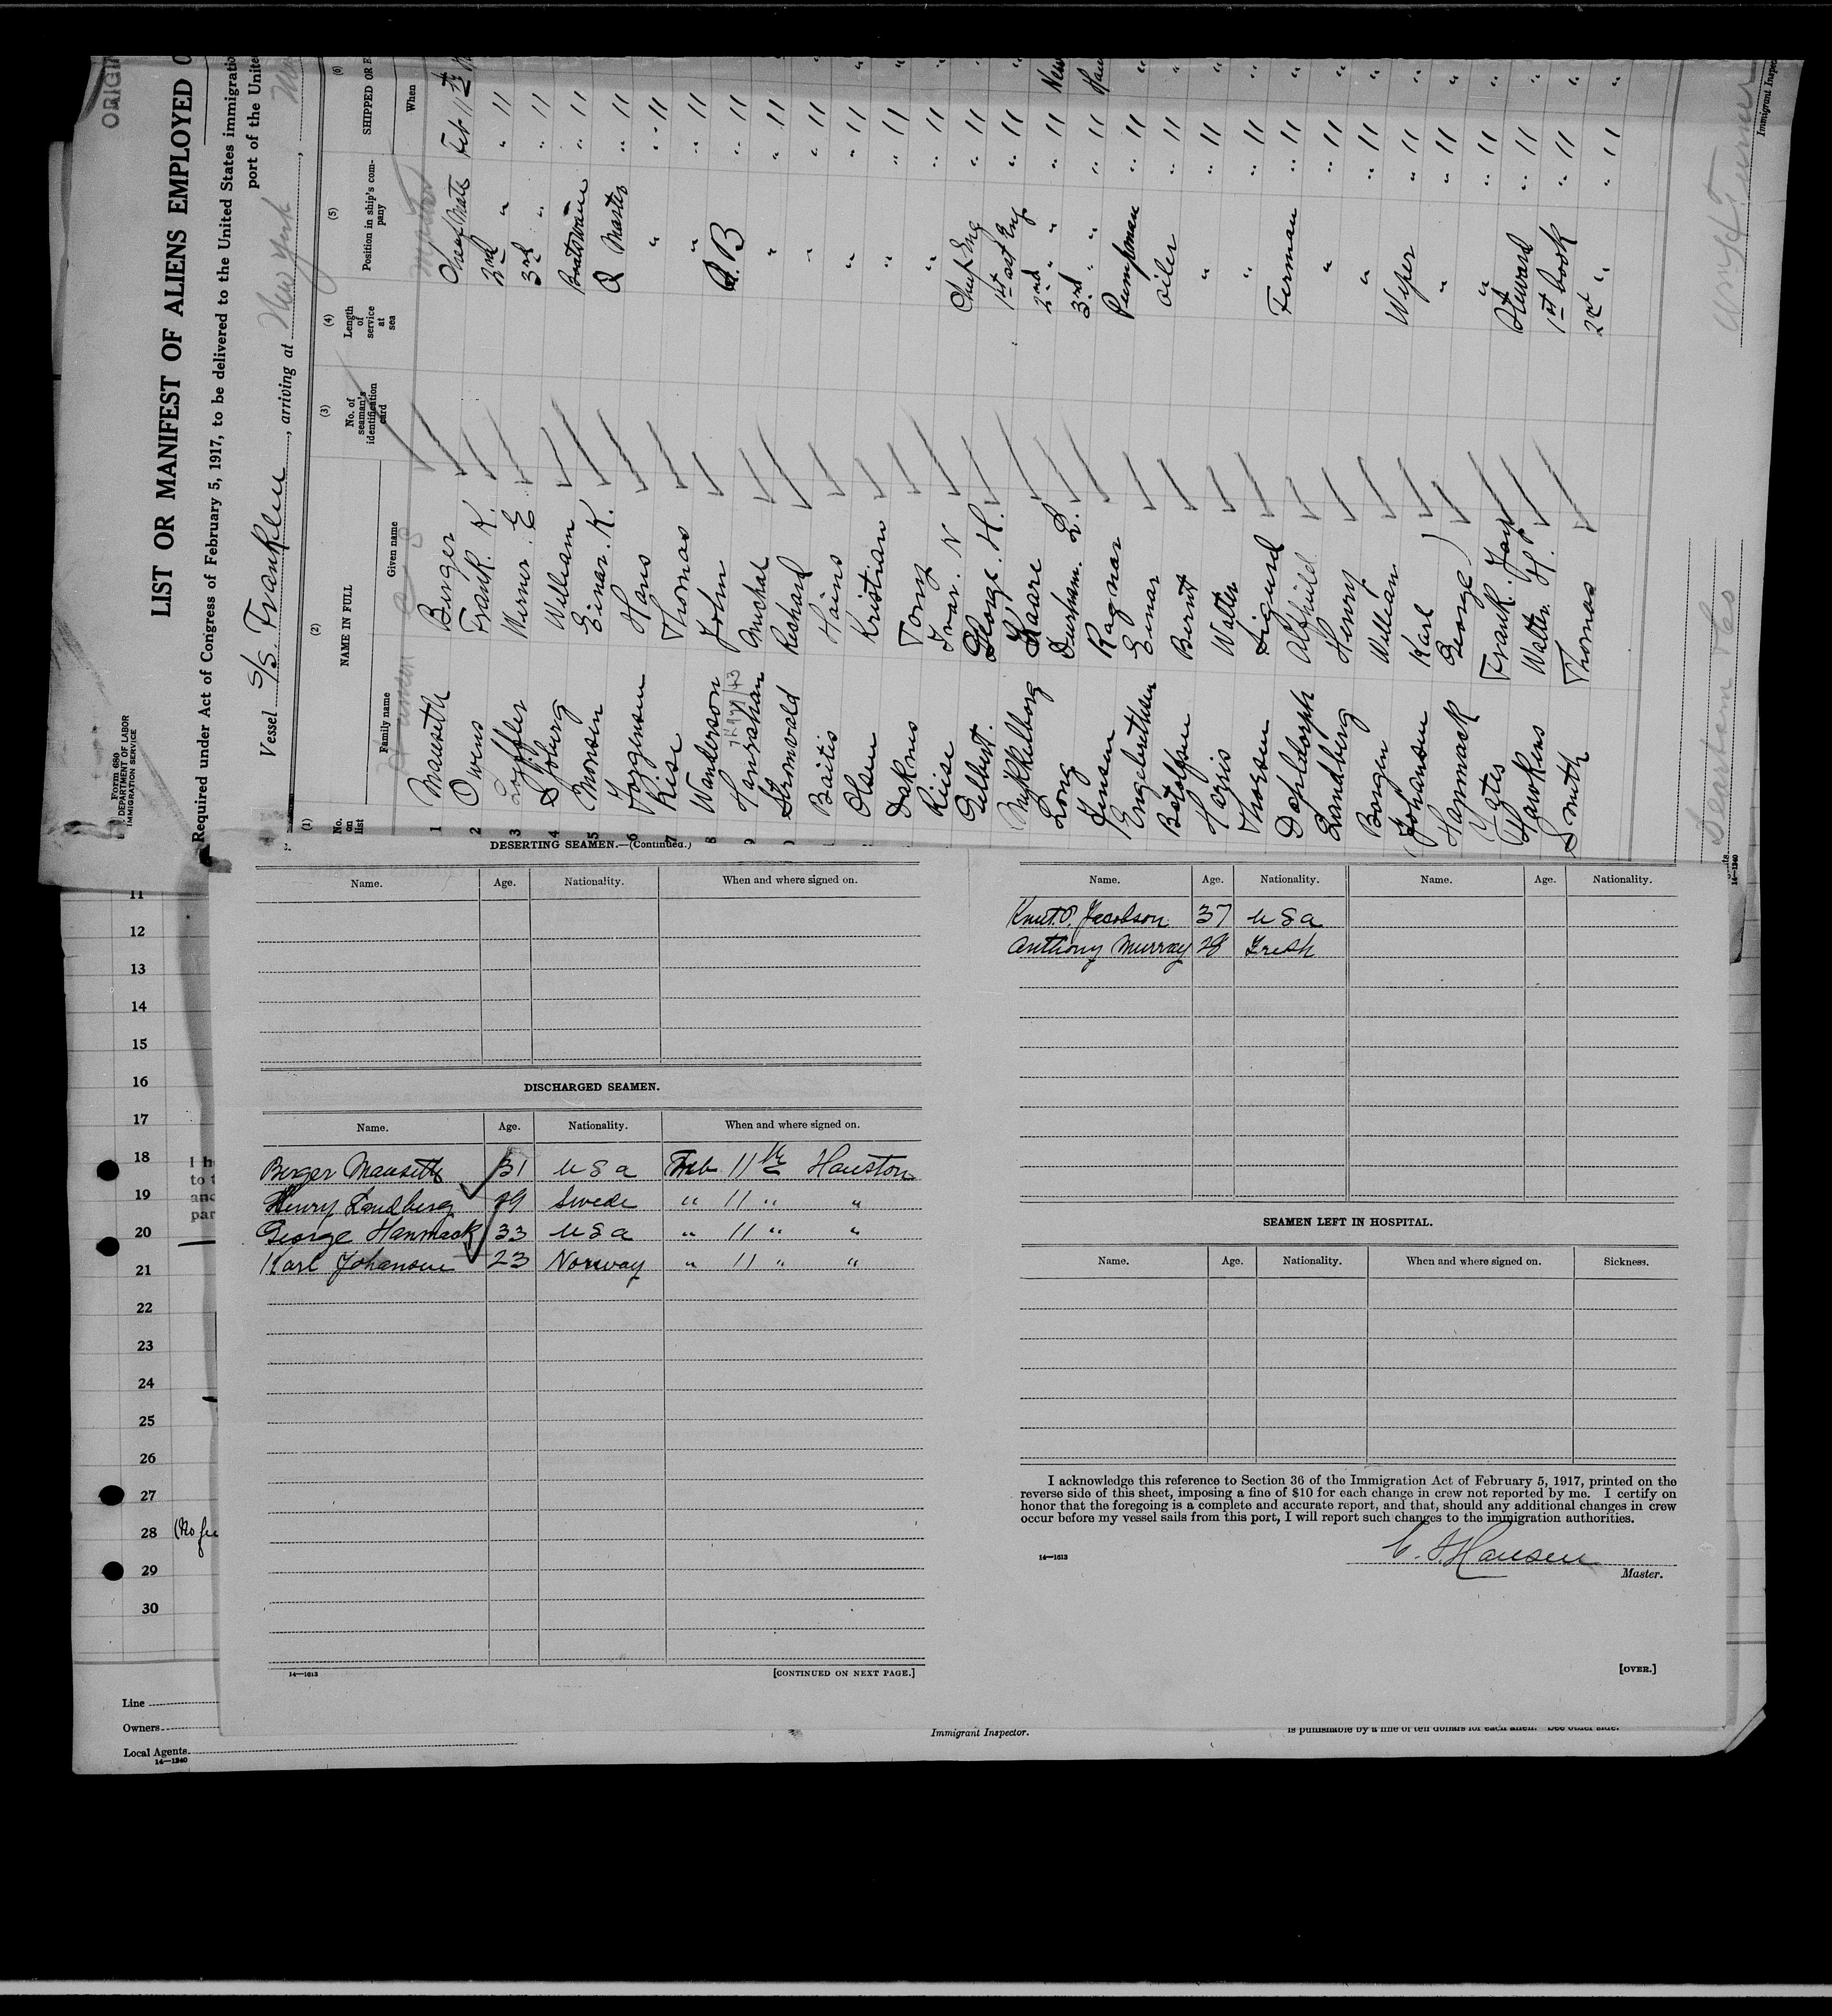 ORIGI
Form 680
DEPARTMENT OF LABOR
IMMIGRATION SERVICE
LIST OR MANIFEST OF ALIENS EMPLOYED O
Required under Act of Congress of February 5, 1917, to be delivered to the United States immigratio
port of the Unite
Vessel S/S. Franklin, arriving at New York,
(1) (2) (3) (4) (5) (6)
No. on list NAME IN FULL No. of seaman's identification card Length of service at sea Position in ship's company SHIPPED OR E
Family name Given name When
1 Mauseth Birger Chief Mate Feb 11th
2 Owens Frank. K. 2nd " " 11
3 Loffler Werner. E 3rd " " 11
4 Sjoberg William Boatswain " 11
5 Monsen Einar. K. Q Master " 11
6 Jorgensen Hans " " 11
7 Riise Thomas " " 11
8 Wanderson John A. B " 11
9 Hanrahan Michal " " 11
Stromvald Richard " " 11
Baitis Hains " " 11
Olsen Kristian " " 11
Dakns Tony " " 11
Riise Ivar. N Chief Eng " 11
Gilbert. George. H. 1st ast Eng " 11
Mykkelborg Kaare 2nd " " " 11 New
Long Durham. L. 3rd " " " 11 Hou
Jensen Ragnar Pumpman " 11 "
Engelbrethsen Einar oiler " 11 "
Botolfsen Bernt " " 11 "
Harris Walter " " 11 "
Thorsen Sigurd Firman " 11 "
Alfhild " " 11 "
Landberg Henry " " 11 "
Borgen William Wiper " 11 "
Johansen Karl " " 11 "
Hanmack George) " " 11 "
Yates Frank. Jay Steward " 11 "
Hawkins Walter. H. 1st Cook " 11 "
Smith Thomas 2nd " " 11 "
Immigrant Inspec
14—1240
11
12
13
14
15
16
17
18
19
20
21
22
23
24
25
26
27
28
29
30
I h
to t
and
par
DESERTING SEAMEN.—(Continued.)
Name. Age. Nationality. When and where signed on.
DISCHARGED SEAMEN.
Name. Age. Nationality. When and where signed on.
Berger Mauseth 31 U S a Feb 11th Houston
Henry Landberg 29 Swede " 11 " "
George Hanmack 33 U S a " 11 " "
Karl Johansen 23 Norway " 11 " "
14—1613
[CONTINUED ON NEXT PAGE.]
Name. Age. Nationality. Name. Age. Nationality.
Knut. O. Jacobson 37 U S a
Anthony Murray 28 Irish
SEAMEN LEFT IN HOSPITAL.
Name. Age. Nationality. When and where signed on. Sickness.
I acknowledge this reference to Section 36 of the Immigration Act of February 5, 1917, printed on the
reverse side of this sheet, imposing a fine of $10 for each change in crew not reported by me. I certify on
honor that the foregoing is a complete and accurate report, and that, should any additional changes in crew
occur before my vessel sails from this port, I will report such changes to the immigration authorities.
14—1613
C. Hansen
Master.
[OVER.]
Line
Owners
Local Agents
14—1240
Immigrant Inspector.
is punishable by a fine of ten dollars for each alien. See other side.